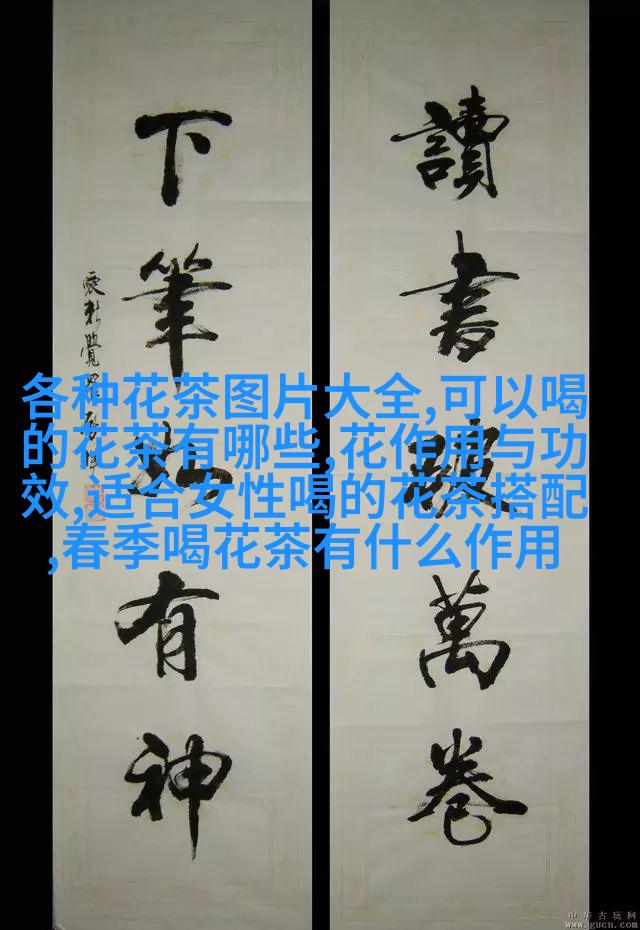 讀書破萬卷
下筆如有神
愛新覺羅
各种花茶图片大全,可以喝
的花茶有哪些,花作用与功
效,适合女性喝的花茶搭配
,春季喝花茶有什么作用
中华古玩网
www.gucn.com